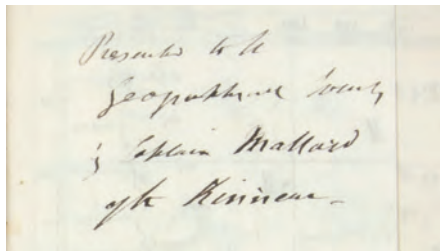 Presented to the
Geographical Society
by Captain Mallard
of the Kinnear.